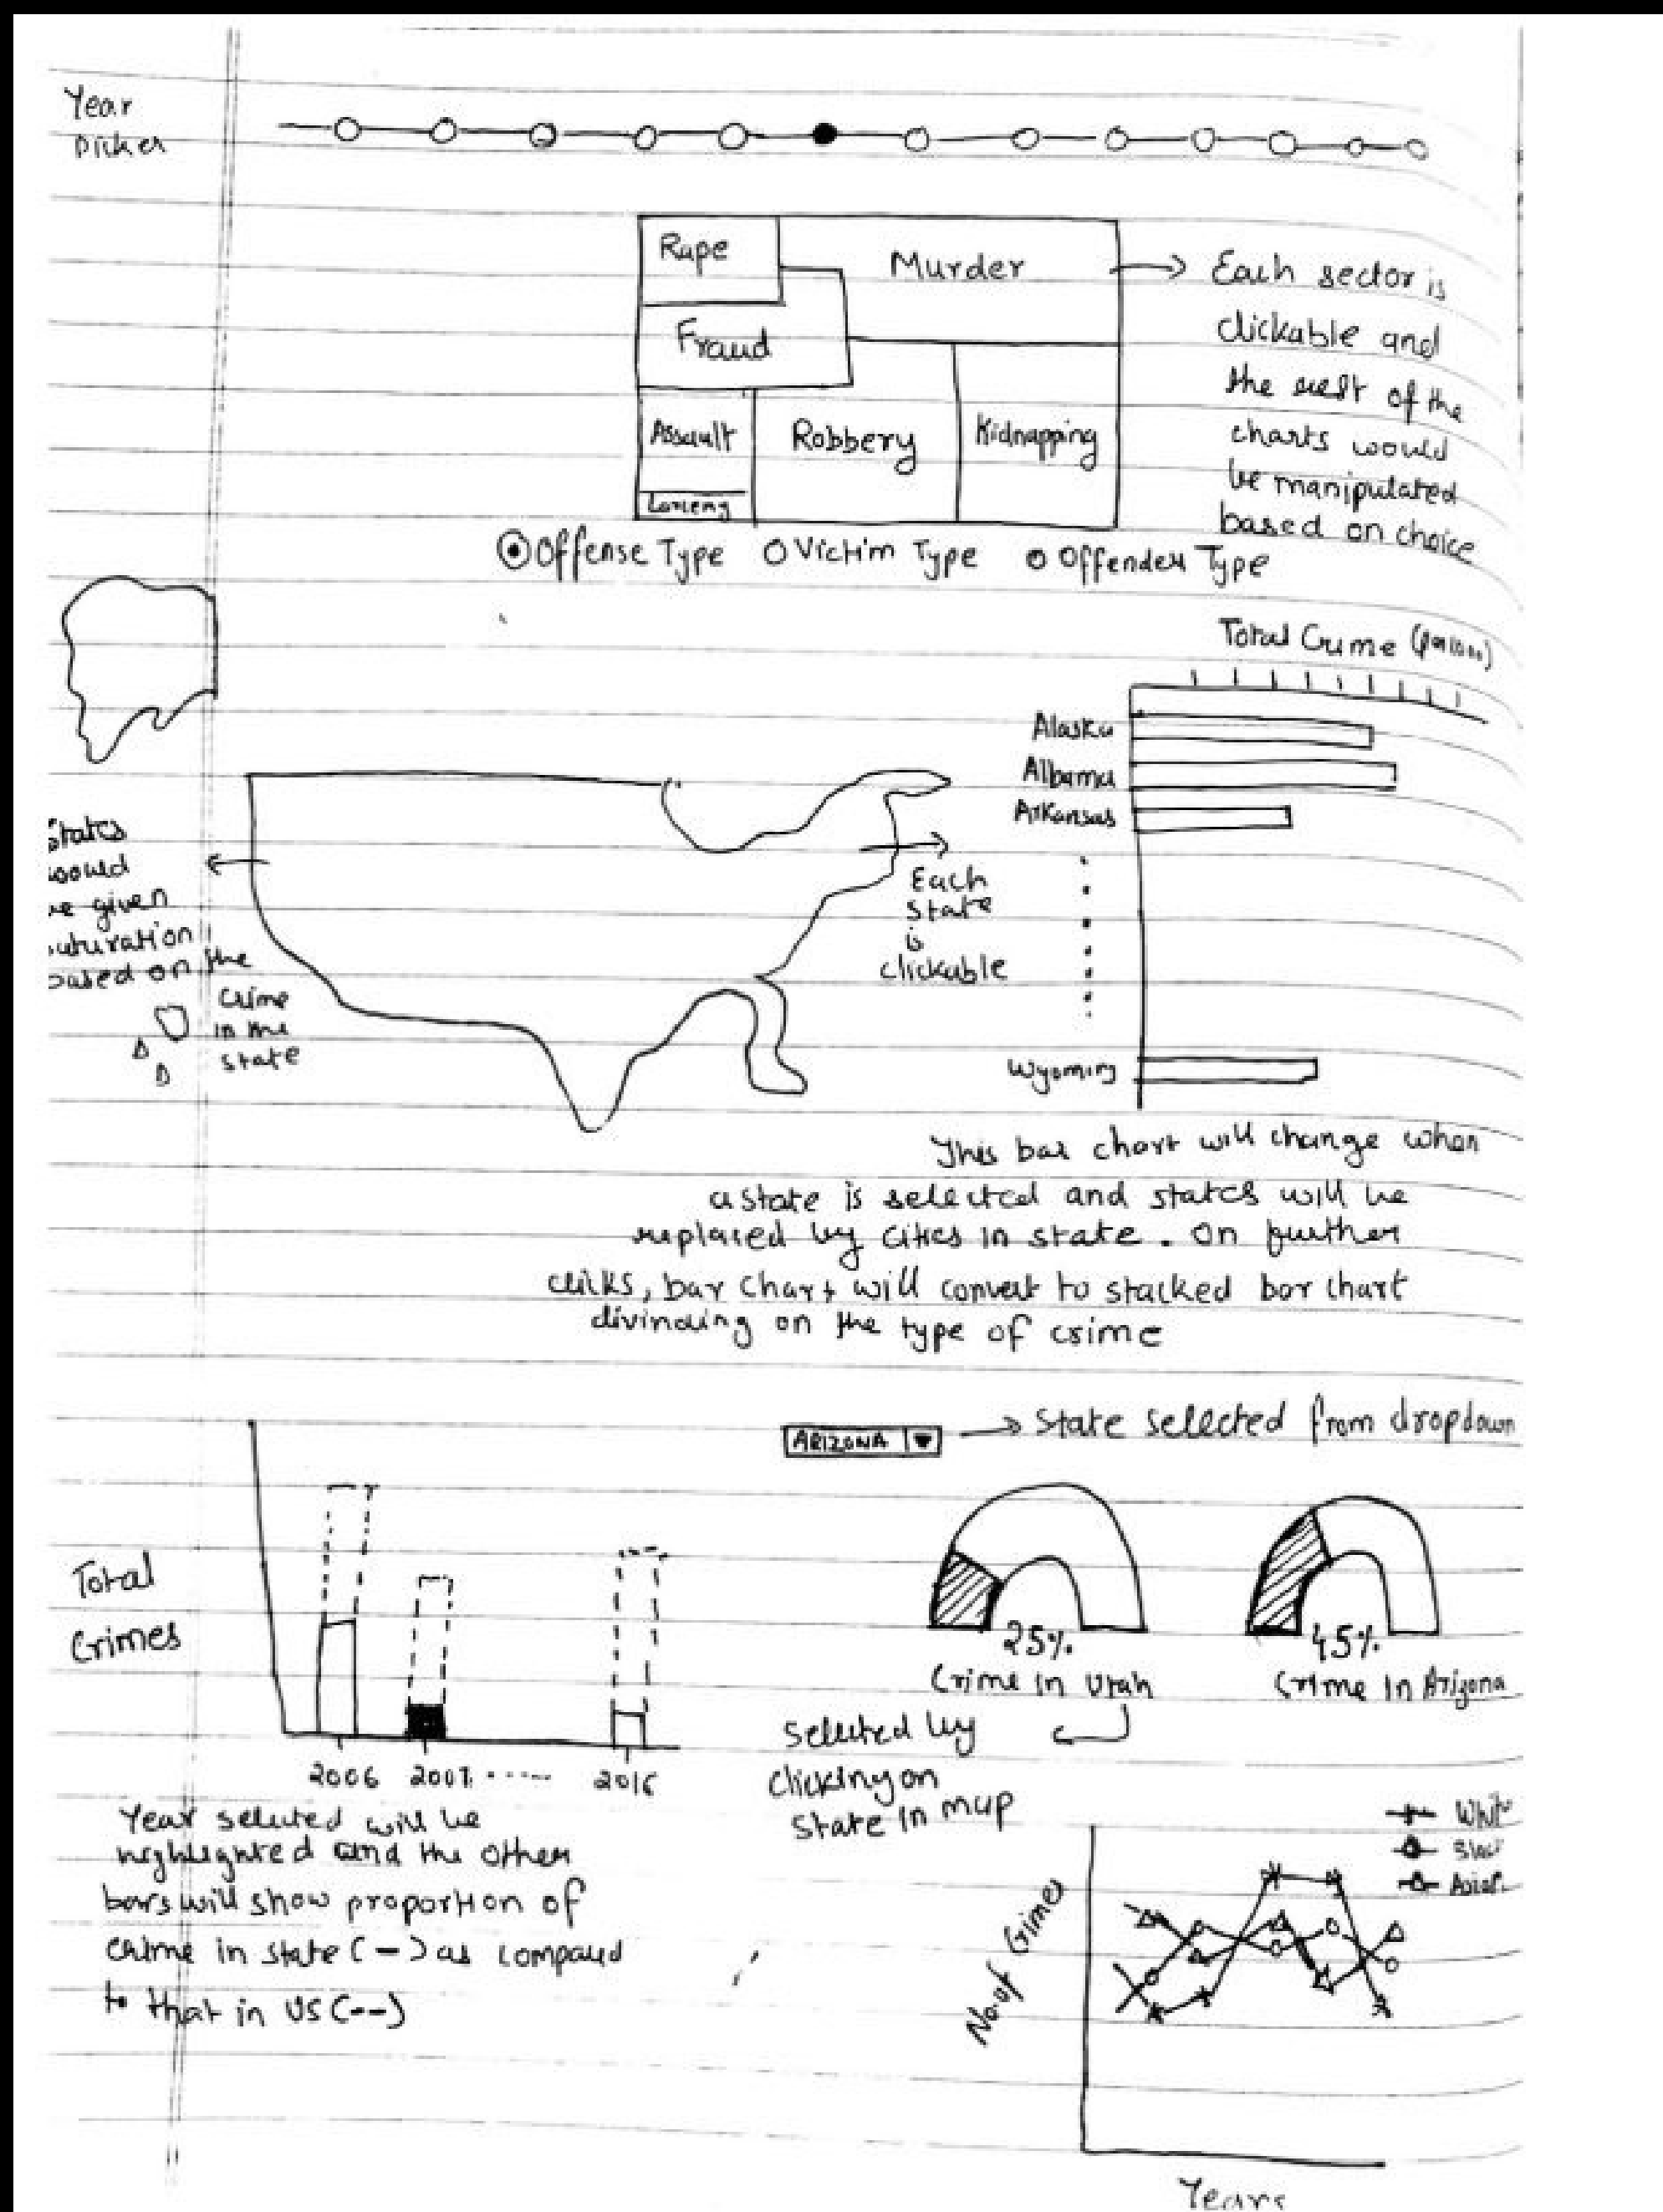 Year
Picker
Rape
Murder
Fraud
Assault
Robbery
Kidnapping
Larceny
Each sector is
clickable and
the rest of the
charts would
be manipulated
based on choice
Offense Type
Victim Type
Offender Type
Total Crime
Alaska
Albama
Arkansas
Wyoming
States
would
be given
saturation
based on the
crime
in the
state
Each
state
is
clickable
This bar chart will change when
a state is selected and states will be
replaced by cities in state. On further
clicks, bar chart will convert to stacked bar chart
divinding on the type of crime
ARIZONA
State selected from dropdown
Total
Crimes
2006 2007 ..... 2016
25%
Crime in Utah
45%
Crime in Arizona
Selected by
clicking on
state in map
Year selected will be
highlighted and the other
bars will show proportion of
crime in state (-) as compared
to that in US (--)
White
Black
Asian
No. of Crimes
Years